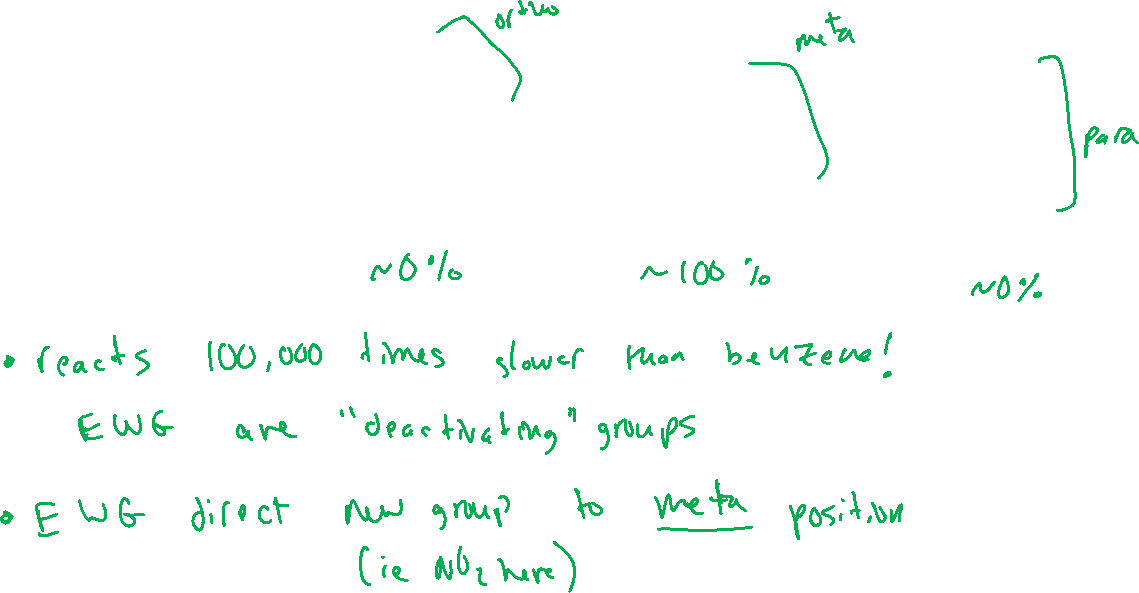 ortho
meta
para
~0% ~100% ~0%
• reacts 100,000 times slower than benzene!
EWG are "deactivating" groups
• EWG direct new group to meta position
(ie NO₂ here)